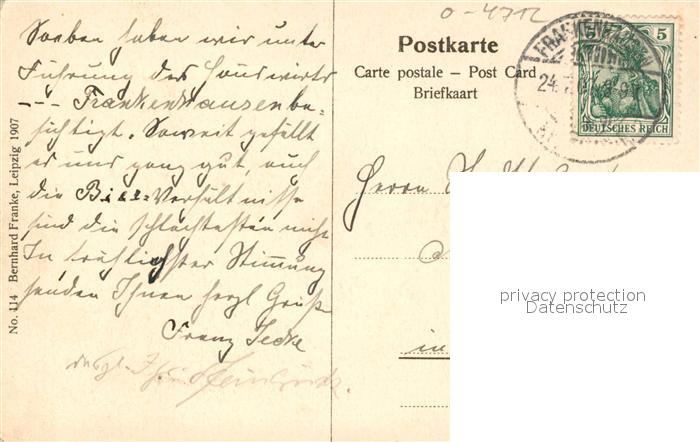 Soeben haben wir unter
Führung des Hauswirts
--- Frankenhausen be-
sichtigt. Soweit gefällt
es uns ganz gut, auch
die Bier=Verhältnisse
sind die schlechtesten nicht
In fröhlichster Stimmung
senden Ihnen herzl Grüße
Franz
desgl.
No. 114 Bernhard Franke, Leipzig 1907
o-4712
Postkarte
Carte postale – Post Card
Briefkaart
FRANKENHAUSEN
24.7.
5 5
DEUTSCHES REICH
Herrn
in
privacy protection
Datenschutz